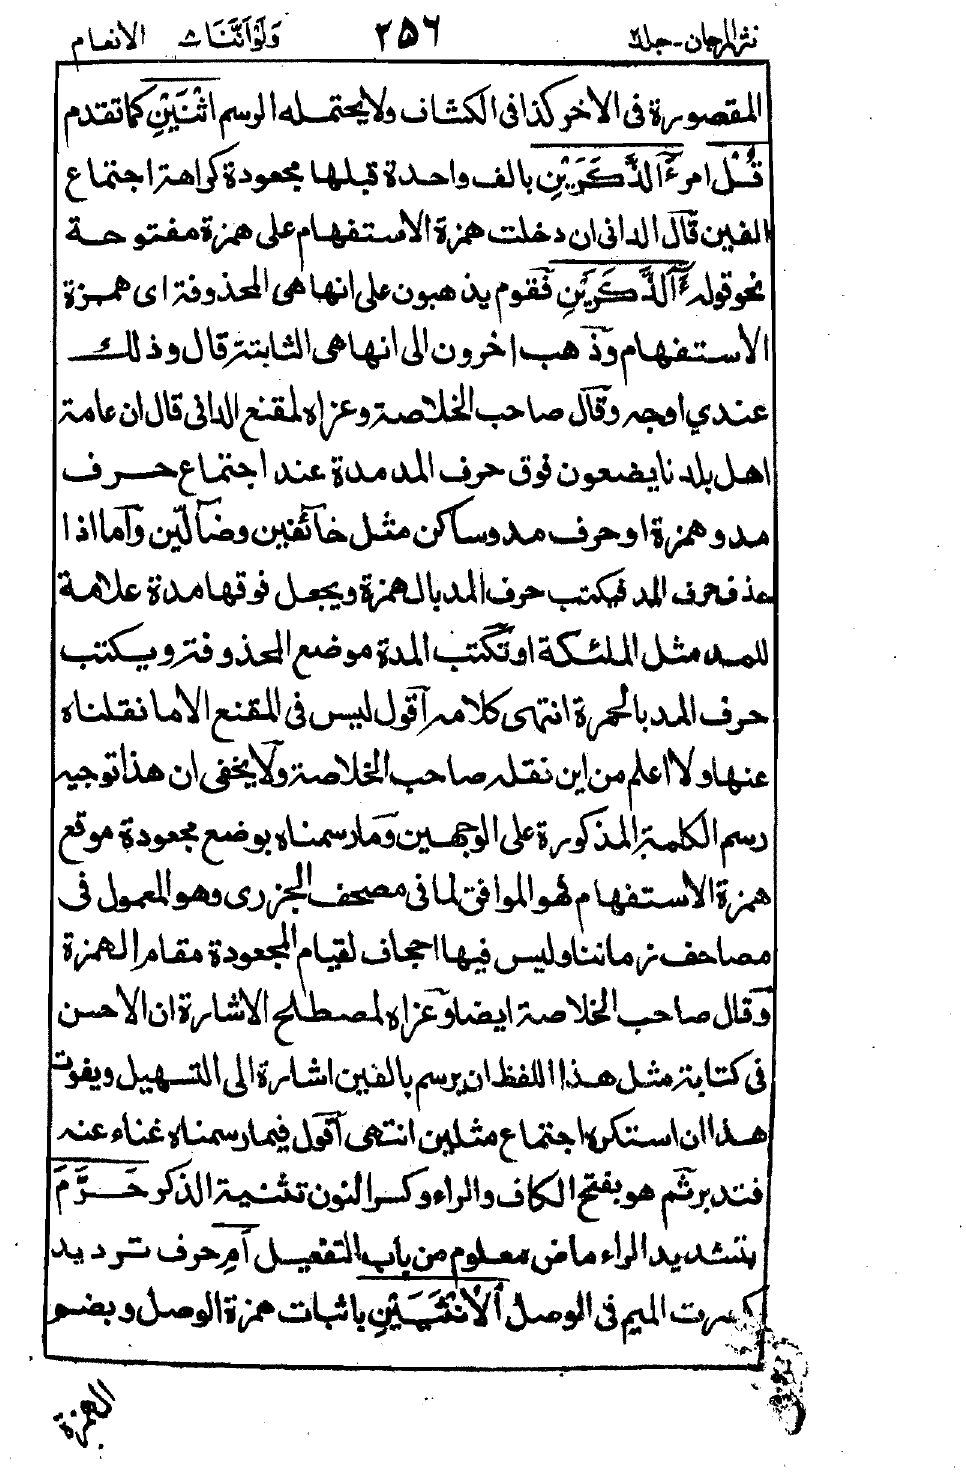 نثر المرجان - جلد ٢ ٢٥٦ ولو اننا ٨ الانعام
المقصورة فى الأخر كذا فى الكشاف ولا يحتمله الرسم اثْنَيْنِ كما تقدم
قُلْ امر ءٓالذَّكَرَيْنِ بالف واحدة قبلها مجعودة كراهة اجتماع
الفين قال الدانى ان دخلت همزة الاستفهام على همزة مفتوحة
نحو قوله ءٓالذَّكَرَيْنِ فقوم يذهبون على انها هى المحذوفة اى همزة
الاستفهام وذهب اخرون الى انها هى الثابتة قال وذلك
عندي اوجه وقال صاحب الخلاصة وعزاه لمقنع الدانى قال ان عامة
اهل بلدنا يضعون فوق حرف المد مدة عند اجتماع حرف
مد وهمزة او حرف مد وساكن مثل خآئفين وضآلّين وآما اذا
حذف حرف المد فيكتب حرف المد بالهمزة ويجعل فوقها مدة علامة
للمد مثل الملئكة او تكتب المدة موضع المحذوفة ويكتب
حرف المد بالحمرة انتهى كلامه آقول ليس فى المقنع الا ما نقلناه
عنها ولا اعلم من اين نقله صاحب الخلاصة ولا يخفى ان هذا توجيه
رسم الكلمة المذكورة على الوجهين وما رسمناه بوضع مجعودة موقع
همزة الاستفهام فهو الموافق لما فى مصحف الجزرى وهو المعمول فى
مصاحف زماننا وليس فيها احجاف لقيام المجعودة مقام الهمزة
وقال صاحب الخلاصة ايضا وعزاه لمصطلح الاشارة ان الاحسن
فى كتابة مثل هذا اللفظ ان يرسم بالفين اشارة الى التسهيل ويفوت
هذا ان استكره اجتماع مثلين انتهى آقول فيما رسمناه غناء عنه
فتدبر ثم هو بفتح الكاف والراء وكسر النون تثنية الذكر حَرَّمَ
بتشديد الراء ماض معلوم من باب التفعيل أَمِ حرف ترديد
كسرت الميم فى الوصل الْأُنْثَيَيْنِ باثبات همزة الوصل وبضم
الهمزة